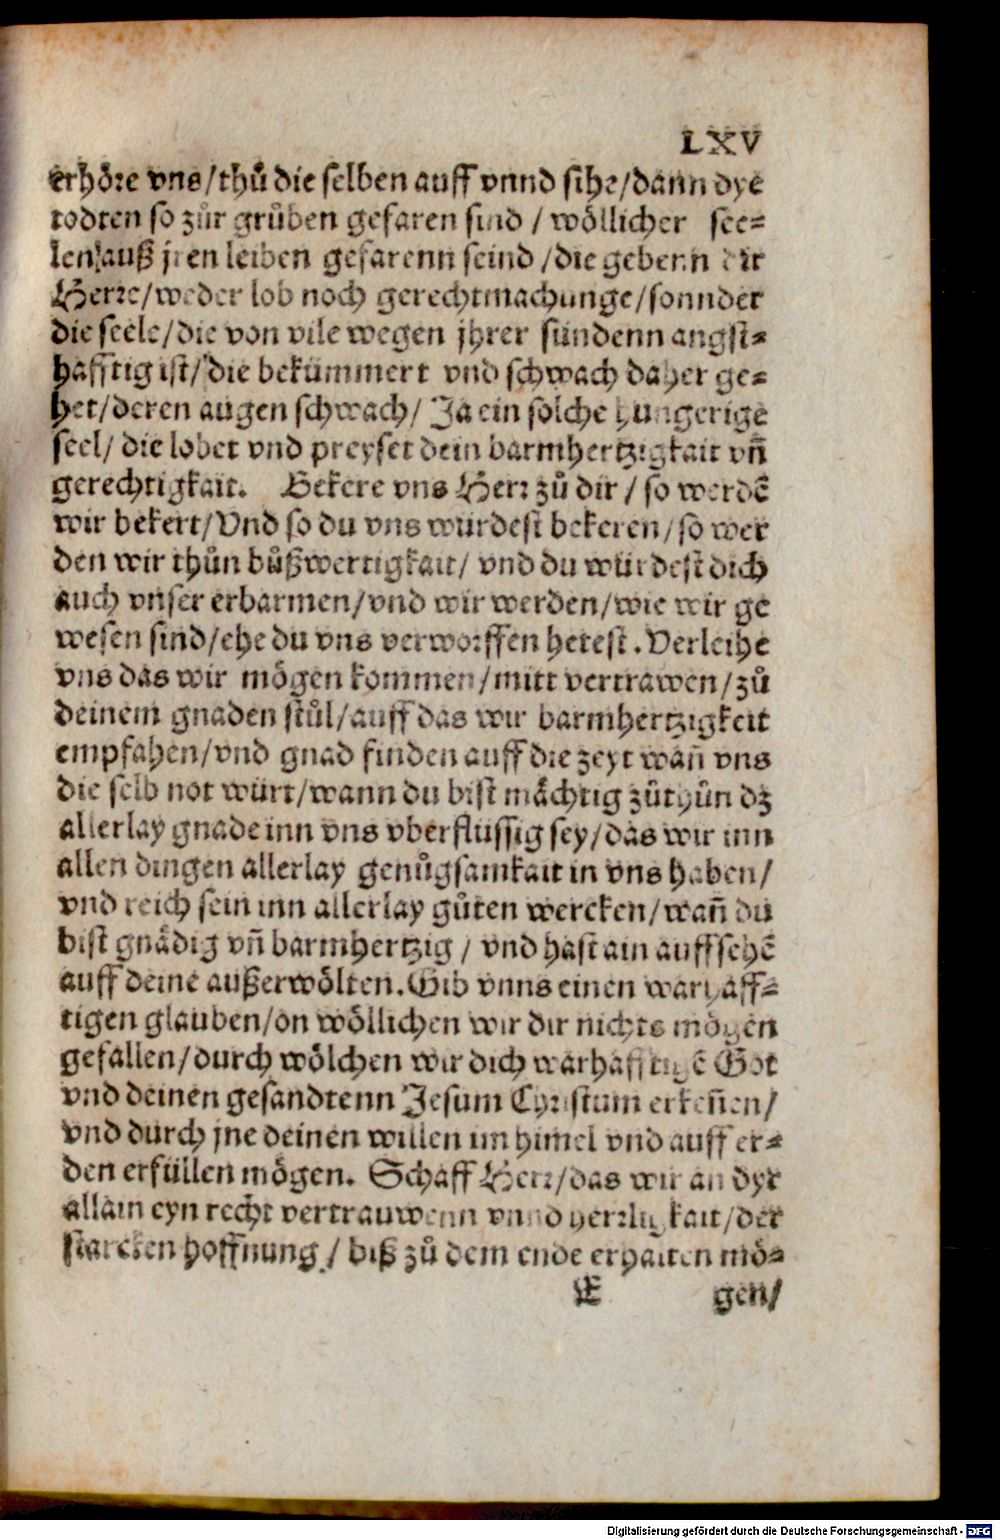 LXV
erhöre vns/thů die selben auff vnnd sihe/dann dye
todten so zůr grůben gefaren sind / wöllicher see-
len/auß jren leiben gefarenn seind /die gebenn dir
Herre/weder lob noch gerechtmachunge/sonnder
die seele/die von vile wegen jhrer sündenn angst-
hafftig ist/die bekümmert vnd schwach daher ge-
het/deren augen schwach/ Ja ein solche hungerige
seel/ die lobet vnd preyset dein barmhertzigkait vñ
gerechtigkait. Bekere vns Herr zů dir / so werdē
wir bekert/Vnd so du vns würdest bekeren/so wer
den wir thůn bůßwertigkait/ vnd du würdest dich
auch vnser erbarmen/vnd wir werden/wie wir ge
wesen sind/ehe du vns verworffen hetest. Verleihe
vns das wir mögen kommen/mitt vertrawen/zů
deinem gnaden stůl/auff das wir barmhertzigkeit
empfahen/vnd gnad finden auff die zeyt wañ vns
die selb not würt/wann du bist mächtig zůthůn dz
allerlay gnade inn vns vberflüssig sey/das wir inn
allen dingen allerlay genůgsamkait in vns haben/
vnd reich sein inn allerlay gůten wercken/wañ du
bist gnädig vñ barmhertzig / vnd hast ain auffsehē
auff deine außerwölten. Gib vnns einen warhaff-
tigen glauben/on wöllichen wir dir nichts mögen
gefallen/durch wölchen wir dich warhafftigē Got
vnd deinen gesandtenn Jesum Christum erkeñen/
vnd durch jne deinen willen im himel vnd auff er-
den erfüllen mögen. Schaff Herr/das wir an dyr
allain eyn recht vertrauwenn vnnd herrligkait/der
starcken hoffnung / biß zů dem ende erhalten mö-
gen/